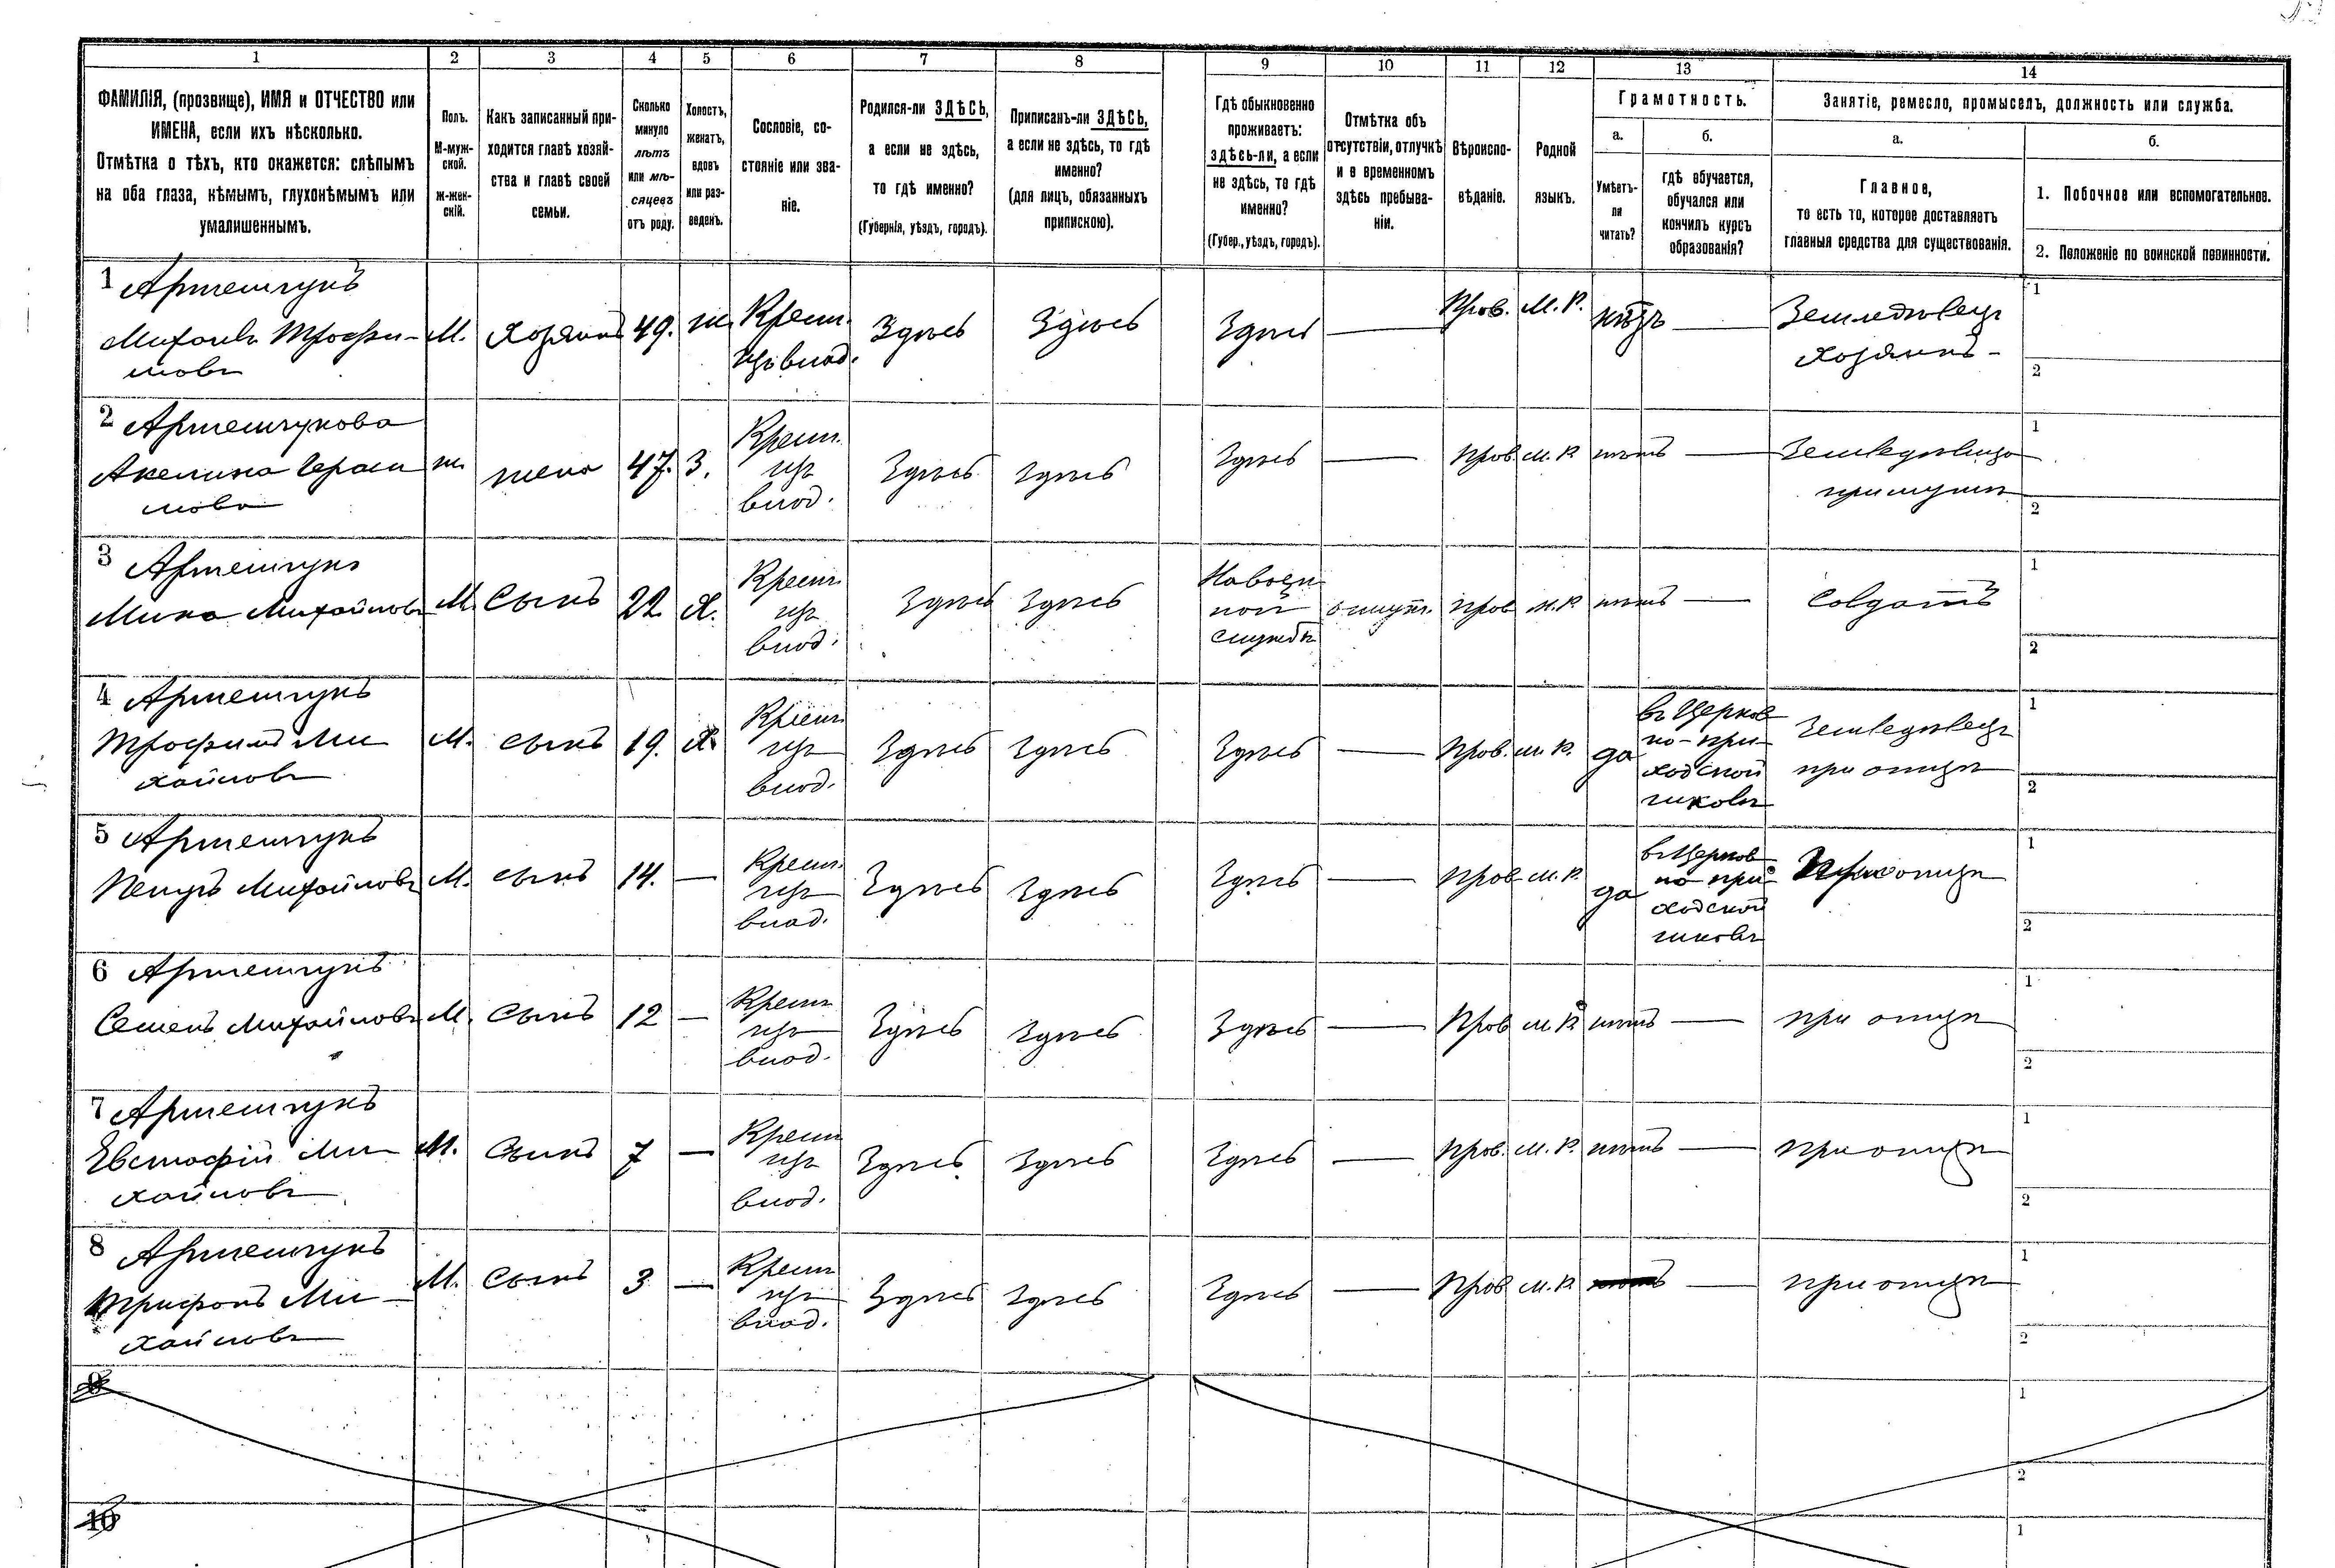 1 2 3 4 5 6 7 8 9 10 11 12 13 14
ФАМИЛІЯ, (прозвище), ИМЯ и ОТЧЕСТВО или
ИМЕНА, если ихъ нѣсколько.
Отмѣтка о тѣхъ, кто окажется: слѣпымъ
на оба глаза, нѣмымъ, глухонѣмымъ или
умалишеннымъ.
Полъ.
М-муж-
ской.
ж-жен-
скій.
Какъ записанный при-
ходится главѣ хозяй-
ства и главѣ своей
семьи.
Сколько
минуло
лѣтъ
или мѣ-
сяцевъ
отъ роду.
Холостъ,
женатъ,
вдовъ
или раз-
веденъ.
Сословіе, со-
стояніе или зва-
ніе.
Родился-ли ЗДѢСЬ,
а если не здѣсь,
то гдѣ именно?
(Губернія, уѣздъ, городъ).
Приписанъ-ли ЗДѢСЬ,
а если не здѣсь, то гдѣ
именно?
(для лицъ, обязанныхъ
припискою).
Гдѣ обыкновенно
проживаетъ:
здѣсь-ли, а если
не здѣсь, то гдѣ
именно?
(Губер., уѣздъ, городъ).
Отмѣтка объ
отсутствіи, отлучкѣ
и о временномъ
здѣсь пребыва-
ніи.
Вѣроиспо-
вѣданіе.
Родной
языкъ.
Грамотность.
а.
Умѣетъ-
ли
читать?
б.
гдѣ обучается,
обучался или
кончилъ курсъ
образованія?
Занятіе, ремесло, промыселъ, должность или служба.
а.
Главное,
то есть то, которое доставляетъ
главныя средства для существованія.
б.
1. Побочное или вспомогательное.
2. Положеніе по воинской повинности.
1 Артемчукъ
Михаилъ Трофи-
мовъ
М. Хозяинъ 49. ж.
Крест.
изъ влад.
Здѣсь Здѣсь Здѣсь — Прав. М. Р. нѣтъ —
Земледѣлецъ
хозяинъ -
1
2
2 Артемчукова
Акелина Гераси
мова
ж. жена 47. З.
Крест.
изъ
влад.
Здѣсь Здѣсь Здѣсь — Прав. м. Р. нѣтъ —
Земледѣлица
при мужѣ
1
2
3 Артемчукъ
Мина Михайловъ
М. Сынъ 22 Х.
Крест.
изъ
влад.
Здѣсь Здѣсь
На воен
ной
службѣ
отлуч. Прав м. Р. нѣтъ — Солдатъ
1
2
4 Артемчукъ
Трофимъ Ми
хайловъ
М. сынъ 19. Х
Крест.
изъ
влад.
Здѣсь Здѣсь Здѣсь — Прав. м. Р. да
въ Церков
но-при-
ходской
школѣ
Земледѣлецъ
при отцѣ
1
2
5 Артемчукъ
Петръ Михайловъ
М. сынъ 14. —
Крест.
изъ
влад.
Здѣсь Здѣсь Здѣсь — Прав м. Р. да
въ Церков
но при
ходской
школѣ
При отцѣ
1
2
6 Артемчукъ
Семенъ Михайловъ
М. Сынъ 12 —
Крест.
изъ
влад.
Здѣсь Здѣсь Здѣсь — Прав м. Р нѣтъ — при отцѣ
1
2
7 Артемчукъ
Евстафій Ми
хайловъ
М. Сынъ 7 —
Крест
изъ
влад.
Здѣсь Здѣсь Здѣсь — Прав. м. Р. нѣтъ — при отцѣ
1
2
8 Артемчукъ
Трифонъ Ми-
хайловъ
М. Сынъ 3 —
Крест
изъ
влад.
Здѣсь Здѣсь Здѣсь — Прав м. Р нѣтъ — при отцѣ
1
2
9
1
2
10
1